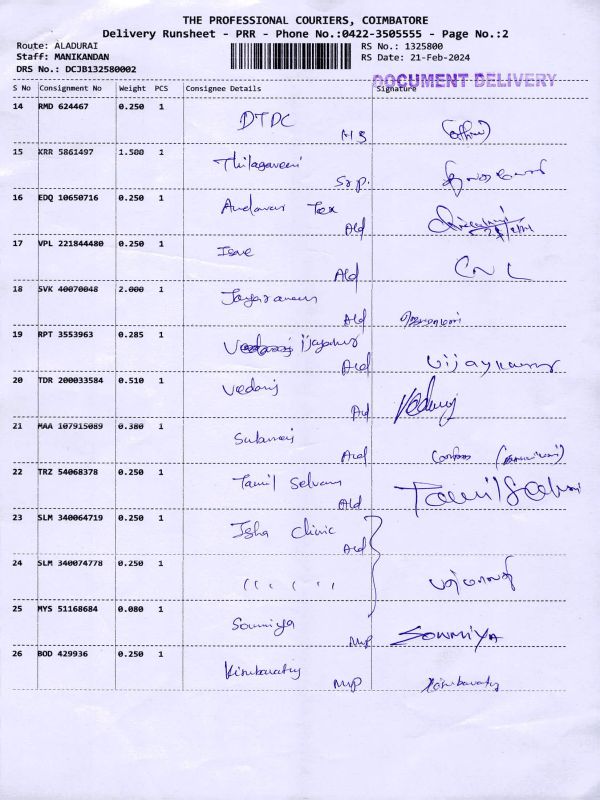 THE PROFESSIONAL COURIERS, COIMBATORE
Delivery Runsheet - PRR - Phone No.:0422-3505555 - Page No.:2
Route: ALADURAI RS No.: 1325800
Staff: MANIKANDAN RS Date: 21-Feb-2024
DRS No.: DCJB132580002
DOCUMENT DELIVERY
S No Consignment No Weight PCS Consignee Details Signature
14 RMD 624467 0.250 1 DTDC
15 KRR 5861497 1.500 1
16 EDQ 10650716 0.250 1 Tex
Ald
17 VPL 221844480 0.250 1
Ald
18 SVK 40070048 2.000 1
Ald
19 RPT 3553963 0.285 1
Ald vijaykumar
20 TDR 200033584 0.510 1 Vedaraj Vedaraj
Ald
21 MAA 107915089 0.380 1
Ald
22 TRZ 54068378 0.250 1 Tamil Selvan Tamil Selvan
Ald
23 SLM 340064719 0.250 1 Isha Clinic
Ald
24 SLM 340074778 0.250 1
25 MYS 51168684 0.080 1 Sowmiya SOWMIYA
MVP
26 BOD 429936 0.250 1
MVP